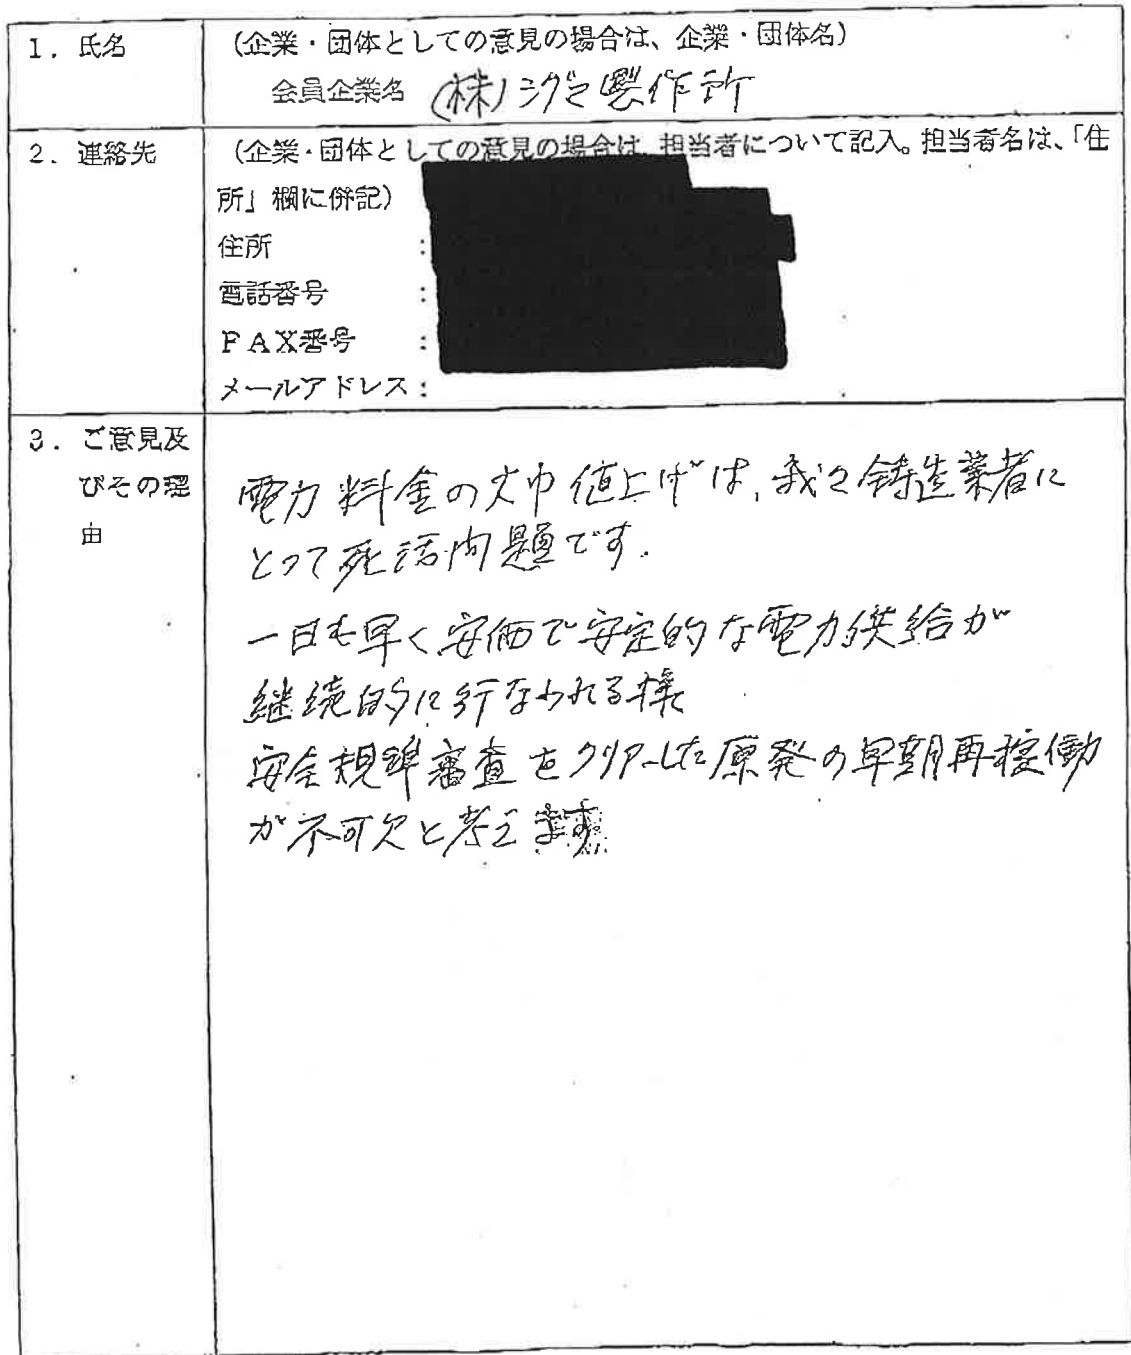 1. 氏名
(企業・団体としての意見の場合は、企業・団体名)
会員企業名 (株)シグマ製作所
2. 連絡先
(企業・団体としての意見の場合は、担当者について記入。担当者名は、「住
所」欄に併記)
住所 :
電話番号 :
FAX番号 :
メールアドレス:
3. ご意見及
びその理
由
電力料金の大巾値上げは、我々鋳造業者に
とって死活問題です.
一日も早く安価で安定的な電力供給が
継続的に行なわれる様
安全規準審査をクリアーした原発の早期再稼働
が不可欠と考えます